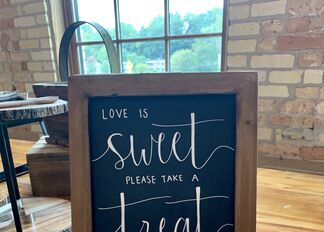 LOVE IS
sweet
PLEASE TAKE A
treat